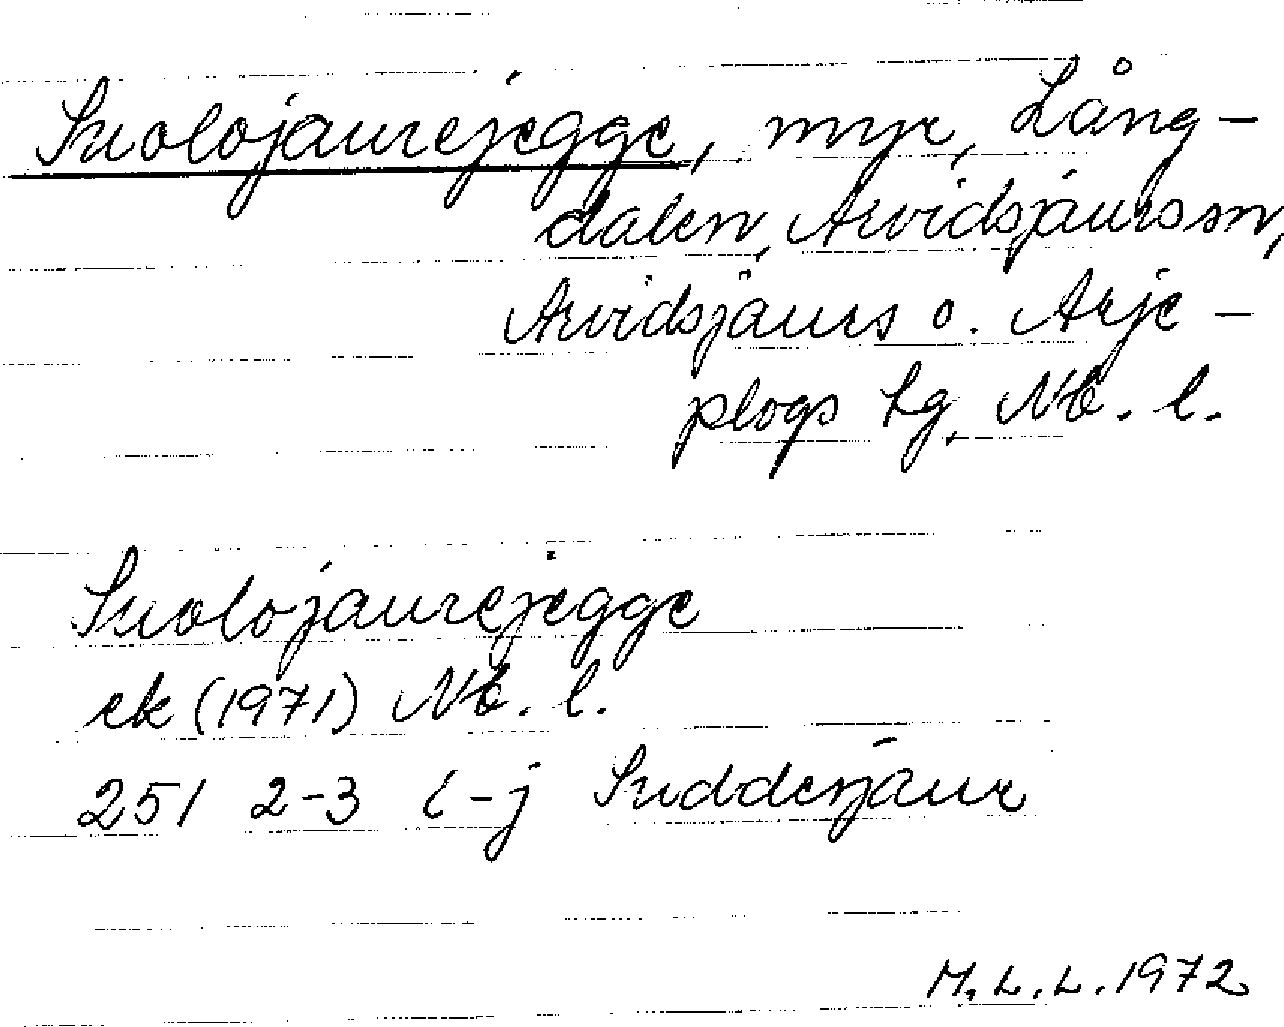 Suolojaurejegge, myr, Lång-
dalen, Arvidsjaurs sn,
Arvidsjaurs o. Arje-
plogs tg, Nb. l.
Suolojaurejegge
ek (1971) Nb. l.
251 2-3 i-j Suddesjaur
M.L.L. 1972